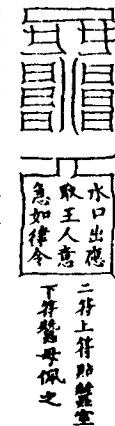 水口出應
取王人意
急如律令
二符上符貼蠶室
下符蠶母佩之